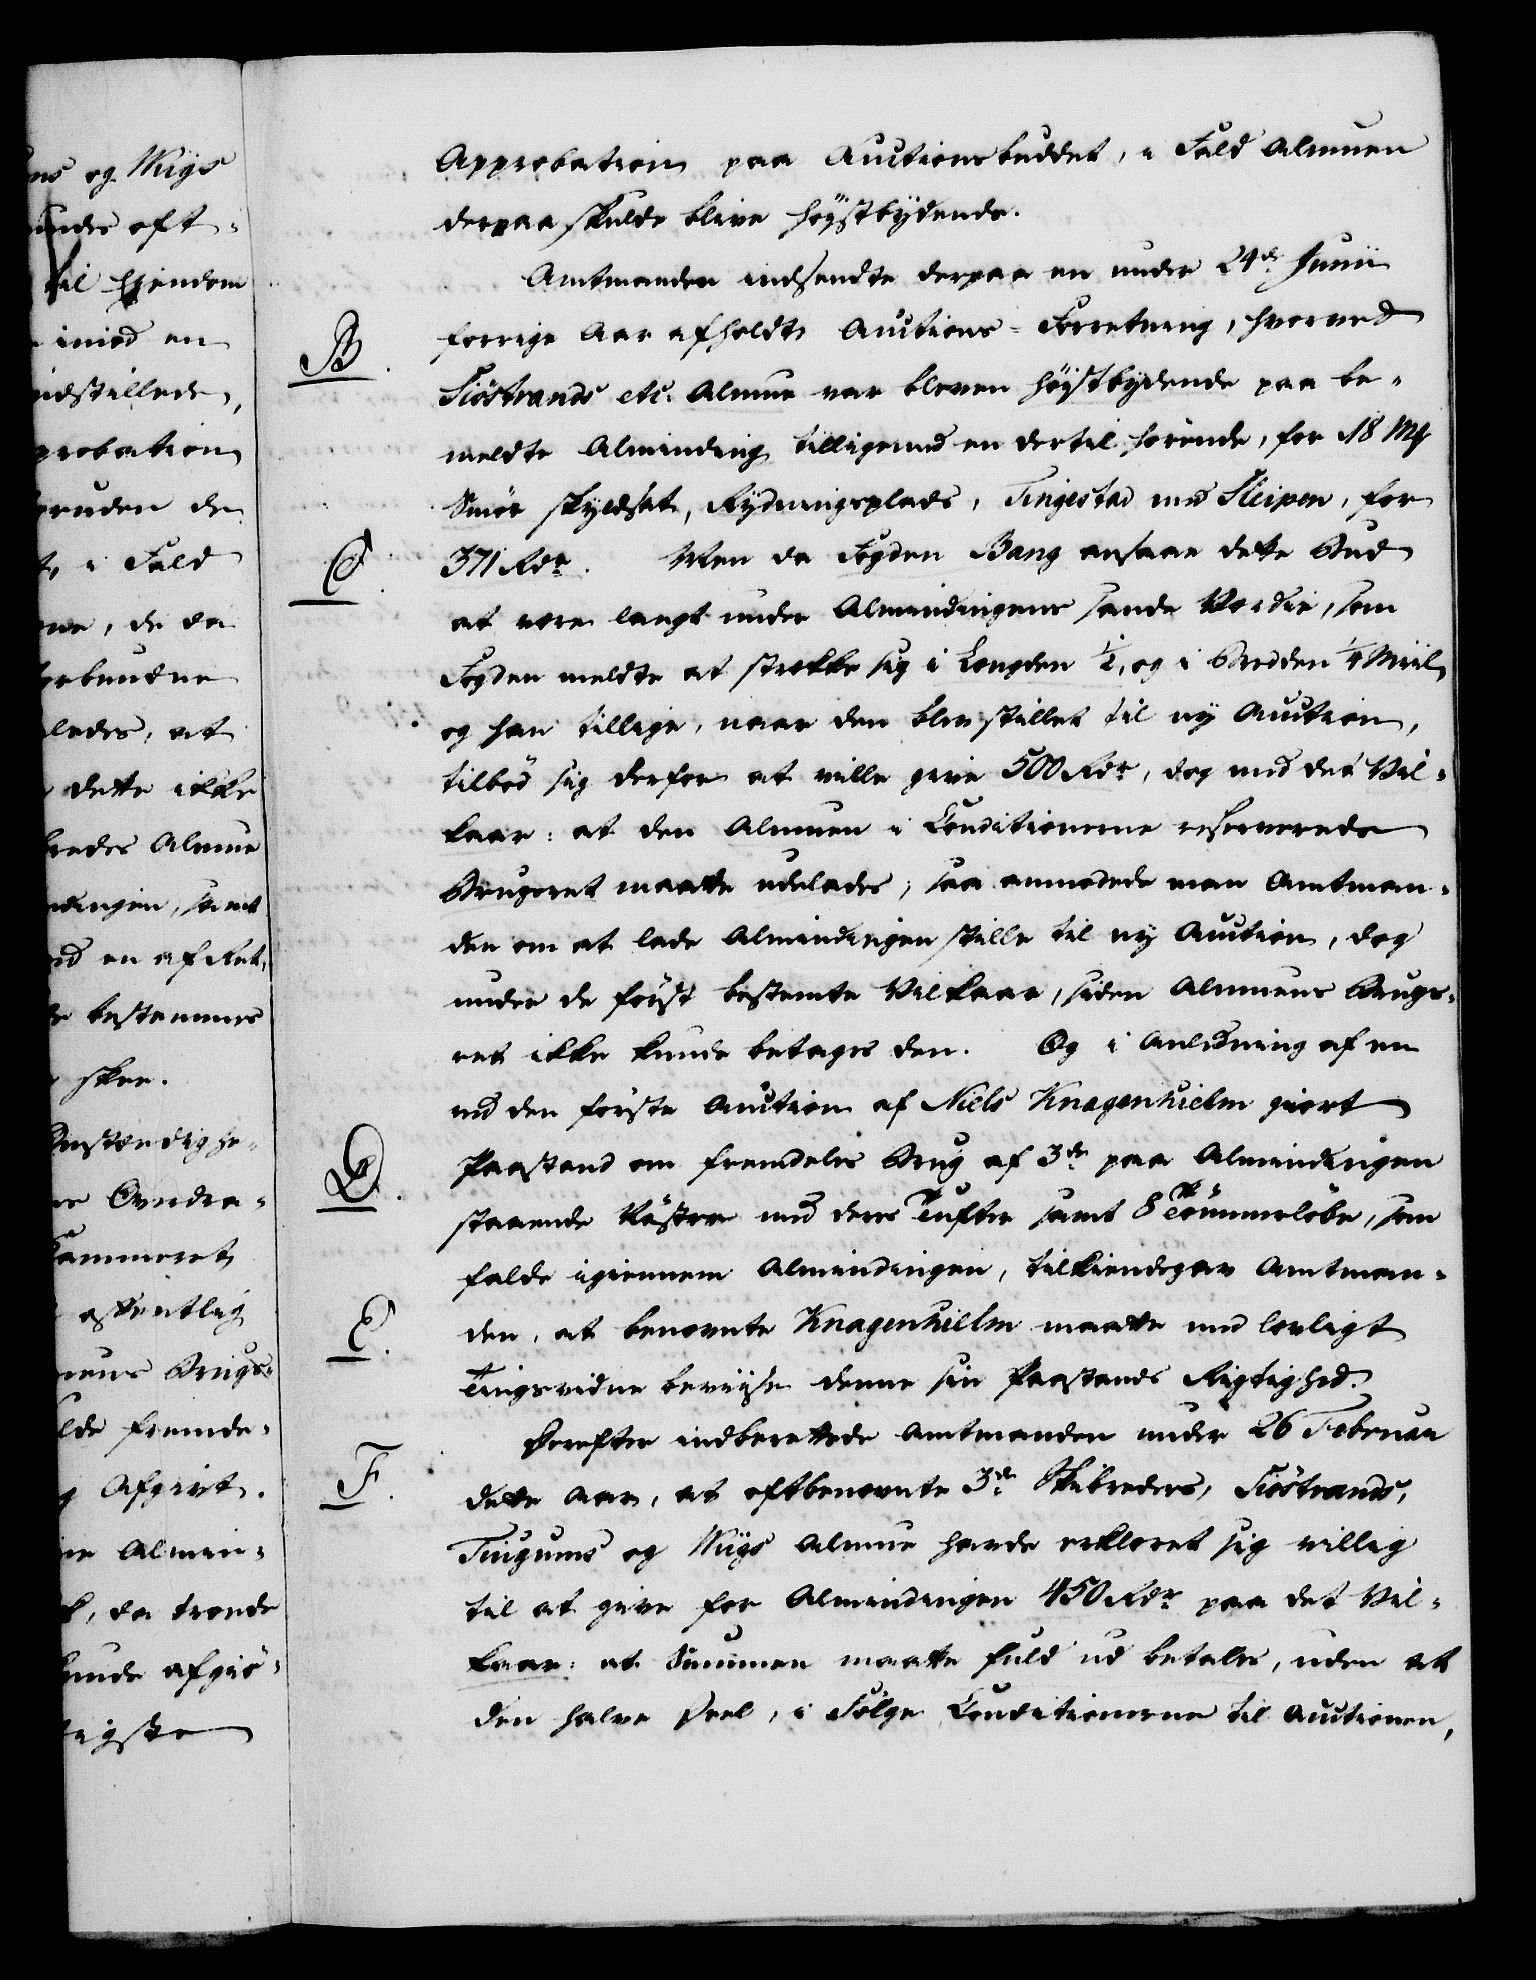 ns og Wiigs
undes oft-
til Ejendom
imod en
indstillede,
probation
gruden de
t, i Fald
nne, de da
forbundne
ledes, at
dette ikke
bredes Almue
ndingen, samt
nd en af Ret-
bestemmes
skee.
Omstændighe-
Kammeret
offentlig
nens Brugs-
lde fremde-
Afgivt.
ne Almin-
, da trende
kunde afgiø-
rigste
Approbation paa Auctionsbuddet, i Fald Almuen
derpaa skulde blive høystbydende.
Amtmanden indsendte derpaa en under 24de Junii
B. forrige Aar afholdt Auctions-Forretning, hvorved
Siöstrands etc. Almue var bleven høystbydende paa be-
meldte Alminding tilligemed en dertil hørende, for 18 Mk
Smør skyldsat, Rydningsplads, Tingestad med Sleipen, for
C. 371 Rdr. Men da Fogden Bang ansaae dette Bud
at være langt under Almindingens sande Værdie, som
Fogden meldte at strække sig i Længden ½, og i Bredden ¼ Miil
og han tillige, naar den blev stillet til ny Auction,
tilbød sig derfor at ville give 500 Rdr, dog med det Vil-
kaar: at den Almuen i Conditionerne reserverede
Brugsret maatte udelades; saa anmodede man Amtman-
den om at lade Almindingen stille til ny Auction, dog
under de først bestemte Vilkaar, siden Almuens Brugs-
ret ikke kunde betages den. Og i Anledning af en
ved den første Auction af Niels Knagenhielm giort
D. Paastand om fremdeles Brug af 3de paa Almindingen
staaende Røster med deres Tufter samt 8te Tømmerløbe, som
falde igiennem Almindingen, tilkiendegav Amtman-
E. den, at benævnte Knagenhielm maatte med lovligt
Tingsvidne beviise denne sin Paastands Rigtighed.
Derefter indberettede Amtmanden under 26 Februar
F. dette Aar, at oftbenævnte 3de Skibreders, Siöstrands,
Tingums og Wiigs Almue havde erklæret sig villig
til at give for Almindingen 450 Rdr paa det Vil-
kaar: at Summen maatte fuld ud betales, uden at
den halve Deel, i Følge Conditionerne til Auctionen,